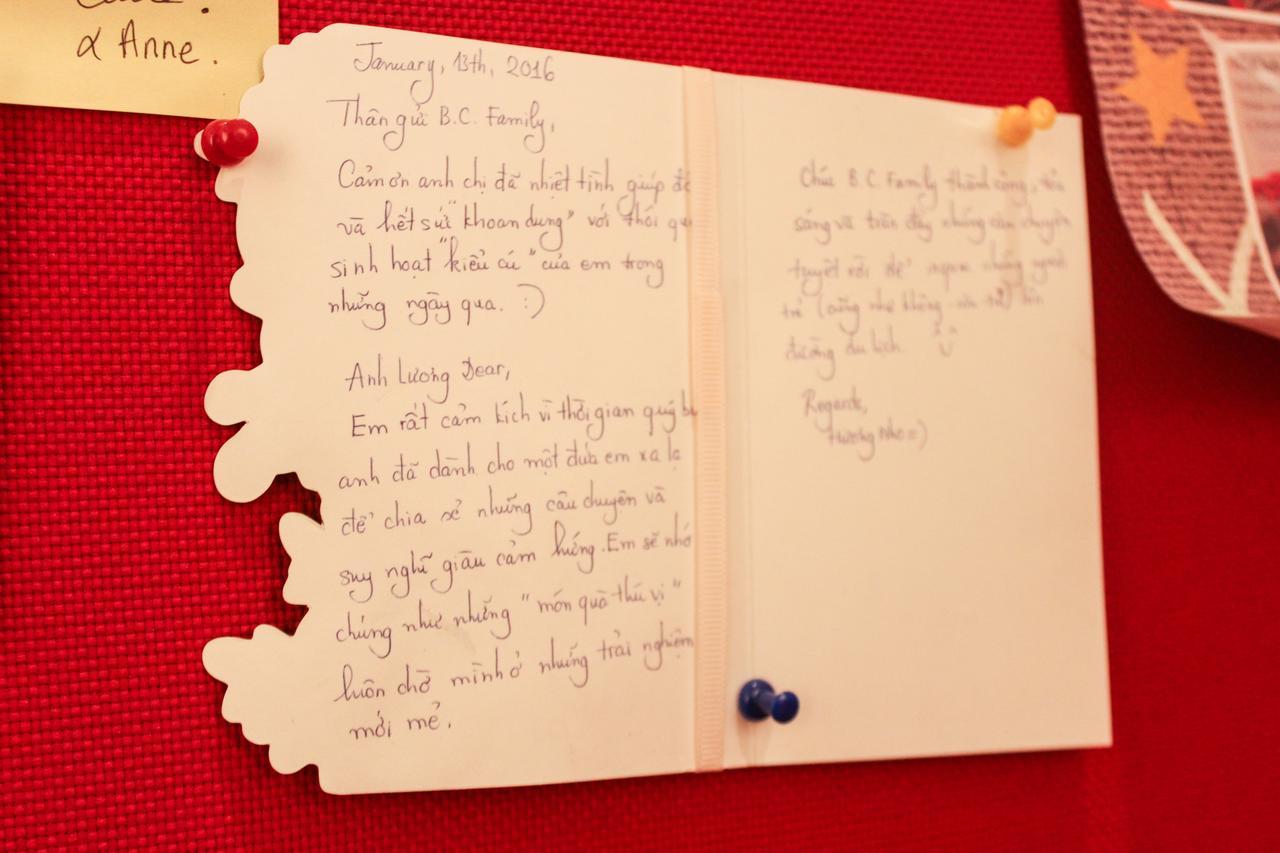 & Anne.
January, 13th, 2016
Thân gửi B.C. Family,
Cảm ơn anh chị đã nhiệt tình giúp đỡ
và hết sức "khoan dung" với thói qu
sinh hoạt "kiểu cú" của em trong
những ngày qua. :)
Anh Lương Dear,
Em rất cảm kích vì thời gian quý b
anh đã dành cho một đứa em xa lạ
để chia sẻ những câu chuyện và
suy nghĩ giàu cảm hứng. Em sẽ nhớ
chúng như những "món quà thú vị"
luôn chờ mình ở những trải nghiệm
mới mẻ.
Chúc B.C. Family thành công, tỏa
sáng và tràn đầy những câu chuyện
tuyệt vời để những người
trẻ (cũng như không còn trẻ) trên
đường du lịch.
Regards,